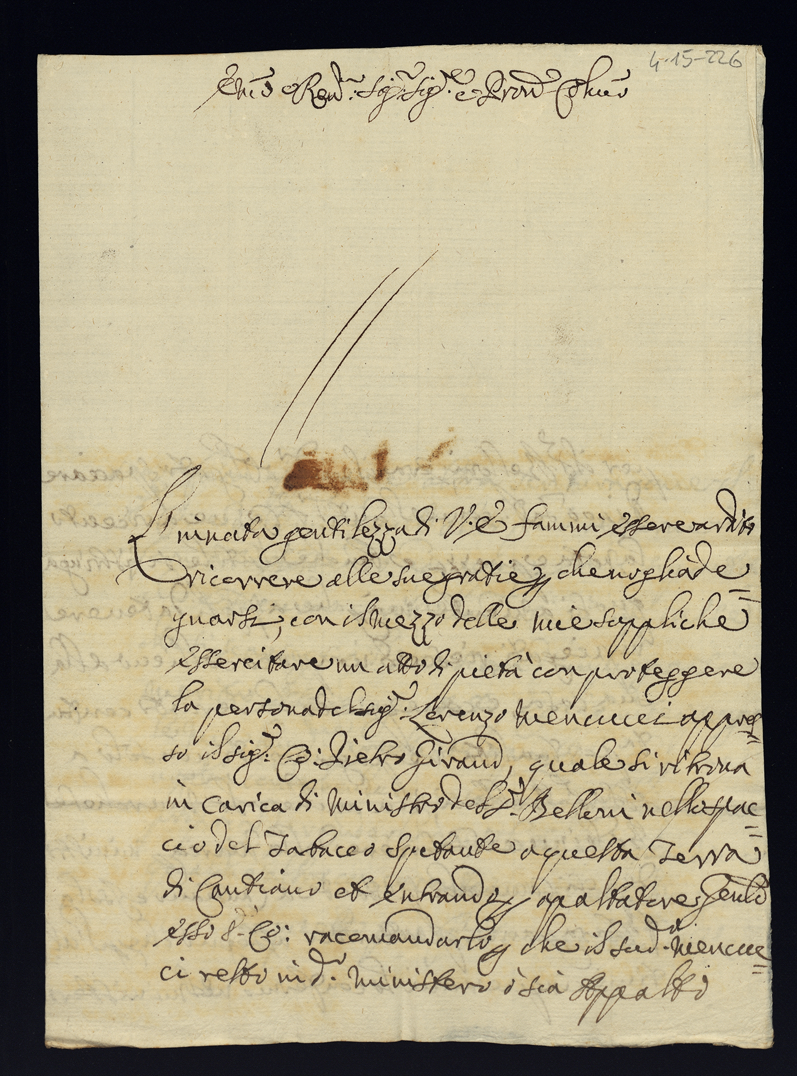 4-15-226
Em̃o e Rev.mo Sig.r Sig.r e Pron̄ Col.mo
L'innata gentilezza di V. E. fammi essere ardito
ricorrere alle sue gratie, che voglia de=
gnarsi, con il mezzo delle mie suppliche
essercitare un atto di pietà con proteggere
la persona del sig.r Lorenzo Mencucci appres=
so il sig.r Co: Pietro Giraud, quale si ritrova
in carica di Ministro del S.r Belloni nello spac=
cio del Tabacco spetante a questa Terra
di Cantiano et entrando apaltatore Gen.le
esso S. Co: racomandarlo che il sud.o Mencuc=
ci resti in d.o ministero ò sia Appalto